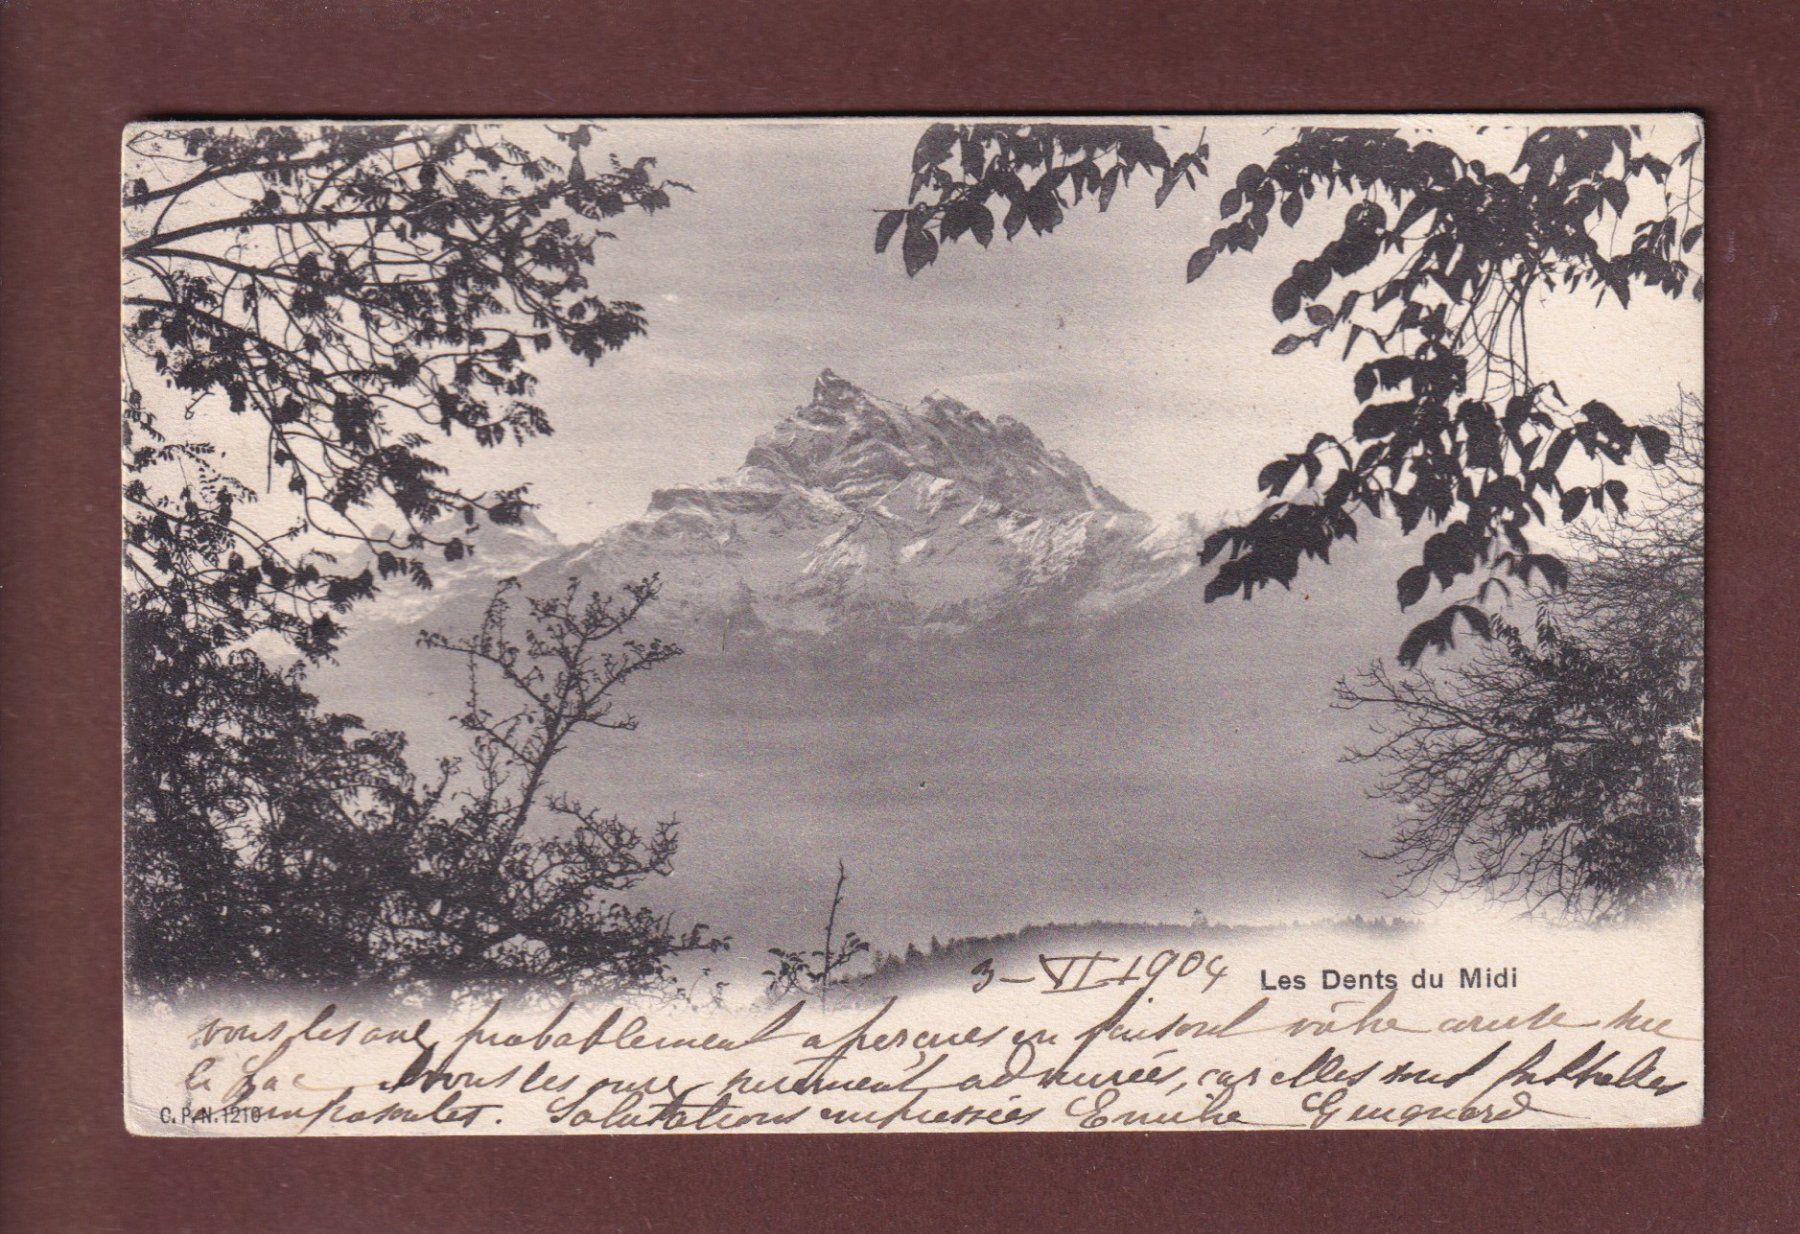 3-VI-1904
Les Dents du Midi
vous les avez probablement aperçues en faisant vôtre course sur
le Lac, & vous les avez surement admirées, car elles sont
C.P.N.1210 imposantes. Salutations empressées Emilie Guignard